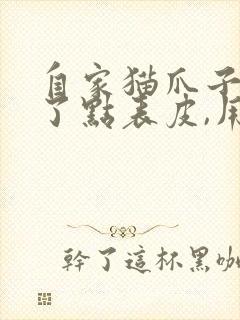 自家猫爪子
了點表皮,用
幹了這杯黑咖